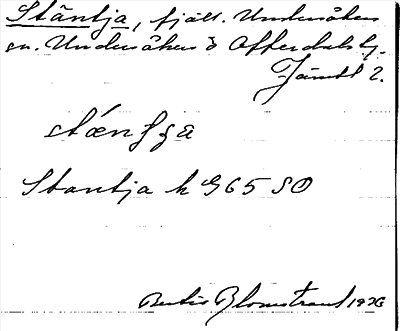 Stäntja, fjäll. Undersåkers
sn. Undersåkers o Offerdals tg.
Jämtl 2.
stænʃʒa
Stantja k G 65 SO
Blomstrand 1926